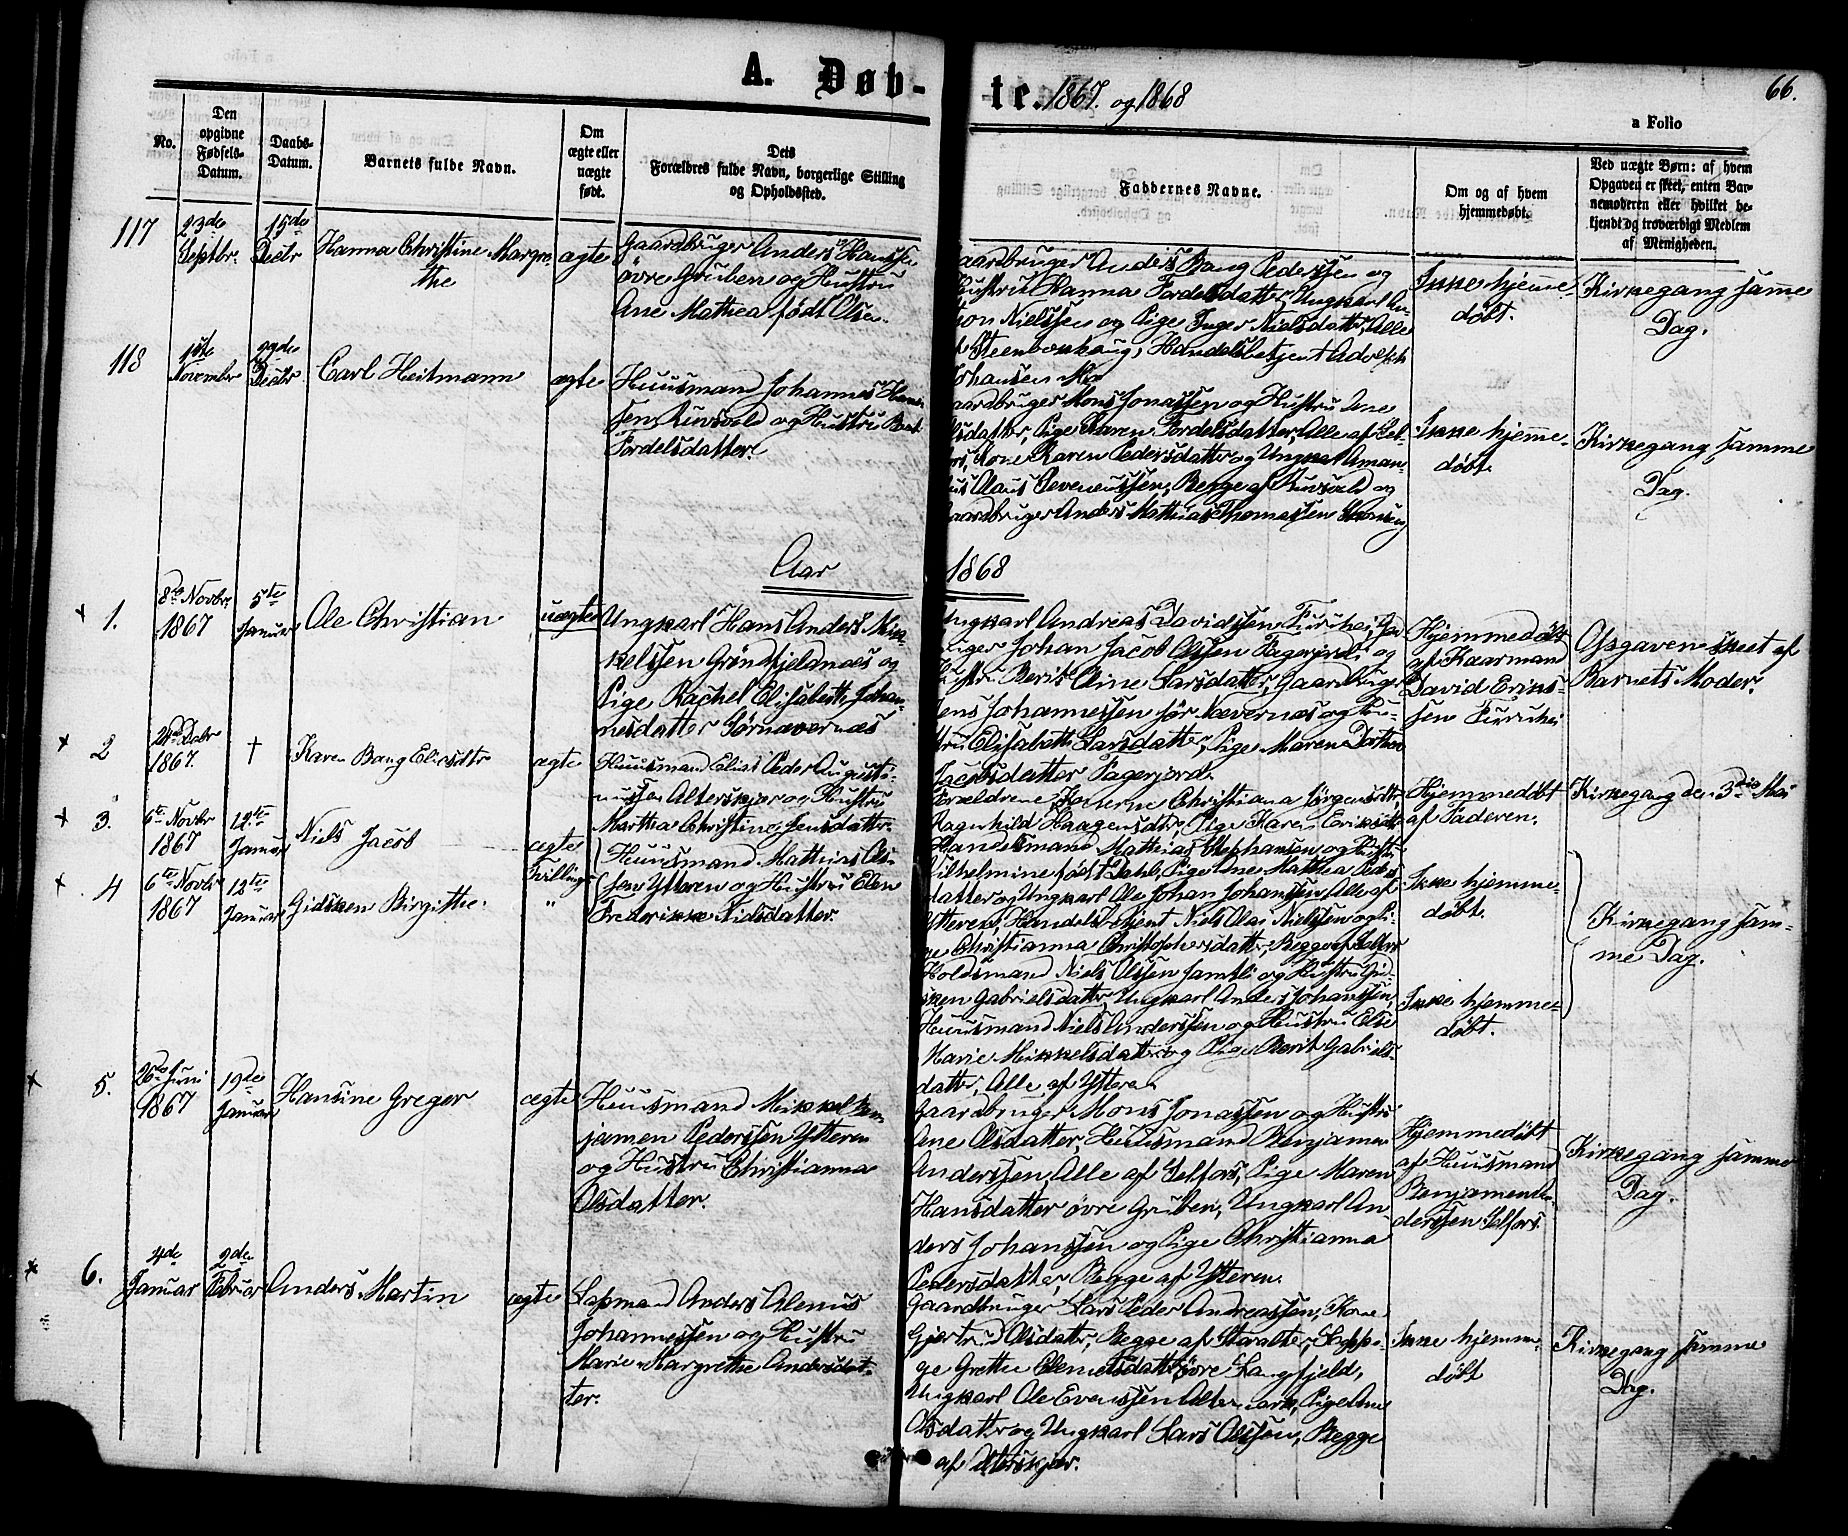 A. Døb-te. 1867. og 1868
66.
a Folio
No.
Den opgivne Fødsels-Datum.
Daabs-Datum.
Barnets fulde Navn.
Om ægte eller uægte født.
Dets Forældres fulde Navn, borgerlige Stilling og Opholdssted.
Faddernes Navne.
Om og af hvem hjemmedøbt.
Ved uægte Børn: af hvem Opgaven er skeet, enten Barnemoderen eller hvilket bekjendt og troværdigt Medlem af Menigheden.
117
23de Septbr.
15de Decbr
Hanna Christine Margre
the
ægte
Gaardbruger Anders Hanssen
övre Gruben og Hustru
Ane Mathea född Olsen.
aardbruger Anders Bang Pederssen og
Hustru Hanna Fordelsdatter, Ungkarl An-
ton Nielssen og Pige Inger Nielsdatter, Alle
f Steenboxhaug, Handelsbetjent Adolph
Johansen Mo
Ikke hjemme-
döbt.
Kirkegang samme
Dag.
118
1ste November
29de Decbr
Carl Heitmann
ægte
Huusmand Johannes Han-
sen Ruusvold og Hustru Berit
Fordelsdatter.
aardbruger Mons Jonassen og Hustru Ane
lsdatter, Pige Karen Fordelsdatter, Alle af Sel-
fors, Kone Karen Pedersdatter og Ungkarl Aman-
us Olaus Severeussen, Begge af Ruusvold og
aardbruger Anders Mathias Thomassen
Ikke hjemme-
döbt.
Kirkegang samme
Dag.
Aar 1868
1.
8de Novbr.
1867
5te
Januar
Ole Christian
uægte
Ungkarl Hans Anders Mik-
kelssen Grönfjeldnæs og
Pige Rachel Elisabeth Johan-
nesdatter Sörnævernæs
Ungkarl Andreas Davidssen Furuhei,
uger Johan Jacob Olssen Fagerjord og
ustru Berit Aine Larsdatter, Gaardbruger
ens Johannessen sör Nævernæs og Hu-
tru Elisabeth Larsdatter, Pige Maren Dorthea
Jacobsdatter Fagerjord.
Hjemmedöbt
af Kaarmand
David Eriks-
sen Furuhei
Opgaven skeet af
Barnets Moder.
2
24de Decbr
1867.
†
Karen Bang Eliasdtr
ægte
Huusmand Elias Peder Augusti-
nussen Alterskjær og Hustru
Martha Christine Jensdatter.
Forældrene, Konerne Christiana Jörgensdtr,
Ragnhild Haagensdtr, Pige Karen Eriksdtr
Hjemmedöbt
af Faderen.
Kirkegang den 3die Mai
3.
6te Novbr
1867
12te
Januar
Niels Jacob
ægte
Tvillinge
Huusmand Mathias Ols-
sen Ytteren og Hustru Elen
Frederikke Nilsdatter.
Handelsmand Mathias Stephansen og Hustru
Wilhelmine född Dahl, Pige Ane Mathea Peders
datter og Ungkarl Ole Johan Johansen Alle af
Ytteren, Handelsbetjent Niels Olai Nielssen og Pi-
ge Christianna Christophersdatter, Begge af Selfors
Ikke hjemme-
döbt.
Kirkegang sam-
me Dag.
4
6te Novbr
1867
12te
Januar
Gidsken Birgithe.
"
Holdsmand Niels Olssen Jamtli og Hustru Gid-
sken Gabrielsdatter, Ungkarl Anders Johanssen,
Huusmand Niels Anderssen og Hustru Else
Marie Mikkelsdatter og Pige Berit Gabriels-
datter, Alle af Ytteren
Ikke hjemme-
döbt.
5.
26de Juni
1867
19de
Januar
Hansine Greger
ægte
Huusmand Mikkel Ben-
jamen Pederssen Ytteren
og Hustru Christianna
Olsdatter.
Gaardbruger Mons Jonassen og Hustru
Ane Olsdatter, Huusmand Benjamen
Anderssen, Alle af Selfors, Pige Maren
Hansdatter övre Gruben, Ungkarl An-
ders Johanssen og Pige Christianna
Pedersdatter, Begge af Ytteren.
Hjemmedöbt
af Huusmand
Benjamen An-
derssen Selfors.
Kirkegang samme
Dag.
6.
4de
Januar
2de
Februar
Anders Martin
ægte
Lapmand Anders Alenius
Johannessen og Hustru
Marie Margrethe Andersdat-
ter.
Gaardbruger Lars Peder Andreassen, Kone
Gjertrud Olsdatter, Begge af Storalter, Lappi-
ge Grethe Clemetsdatter övre Langfjeld,
Ungkarl Ole Evenssen Altermark, Pige Ane
Olsdatter og Ungkarl Lars Olssen, Begge
af Alterskjær.
Ikke hjemme-
döbt
Kirkegang samme
Dag.